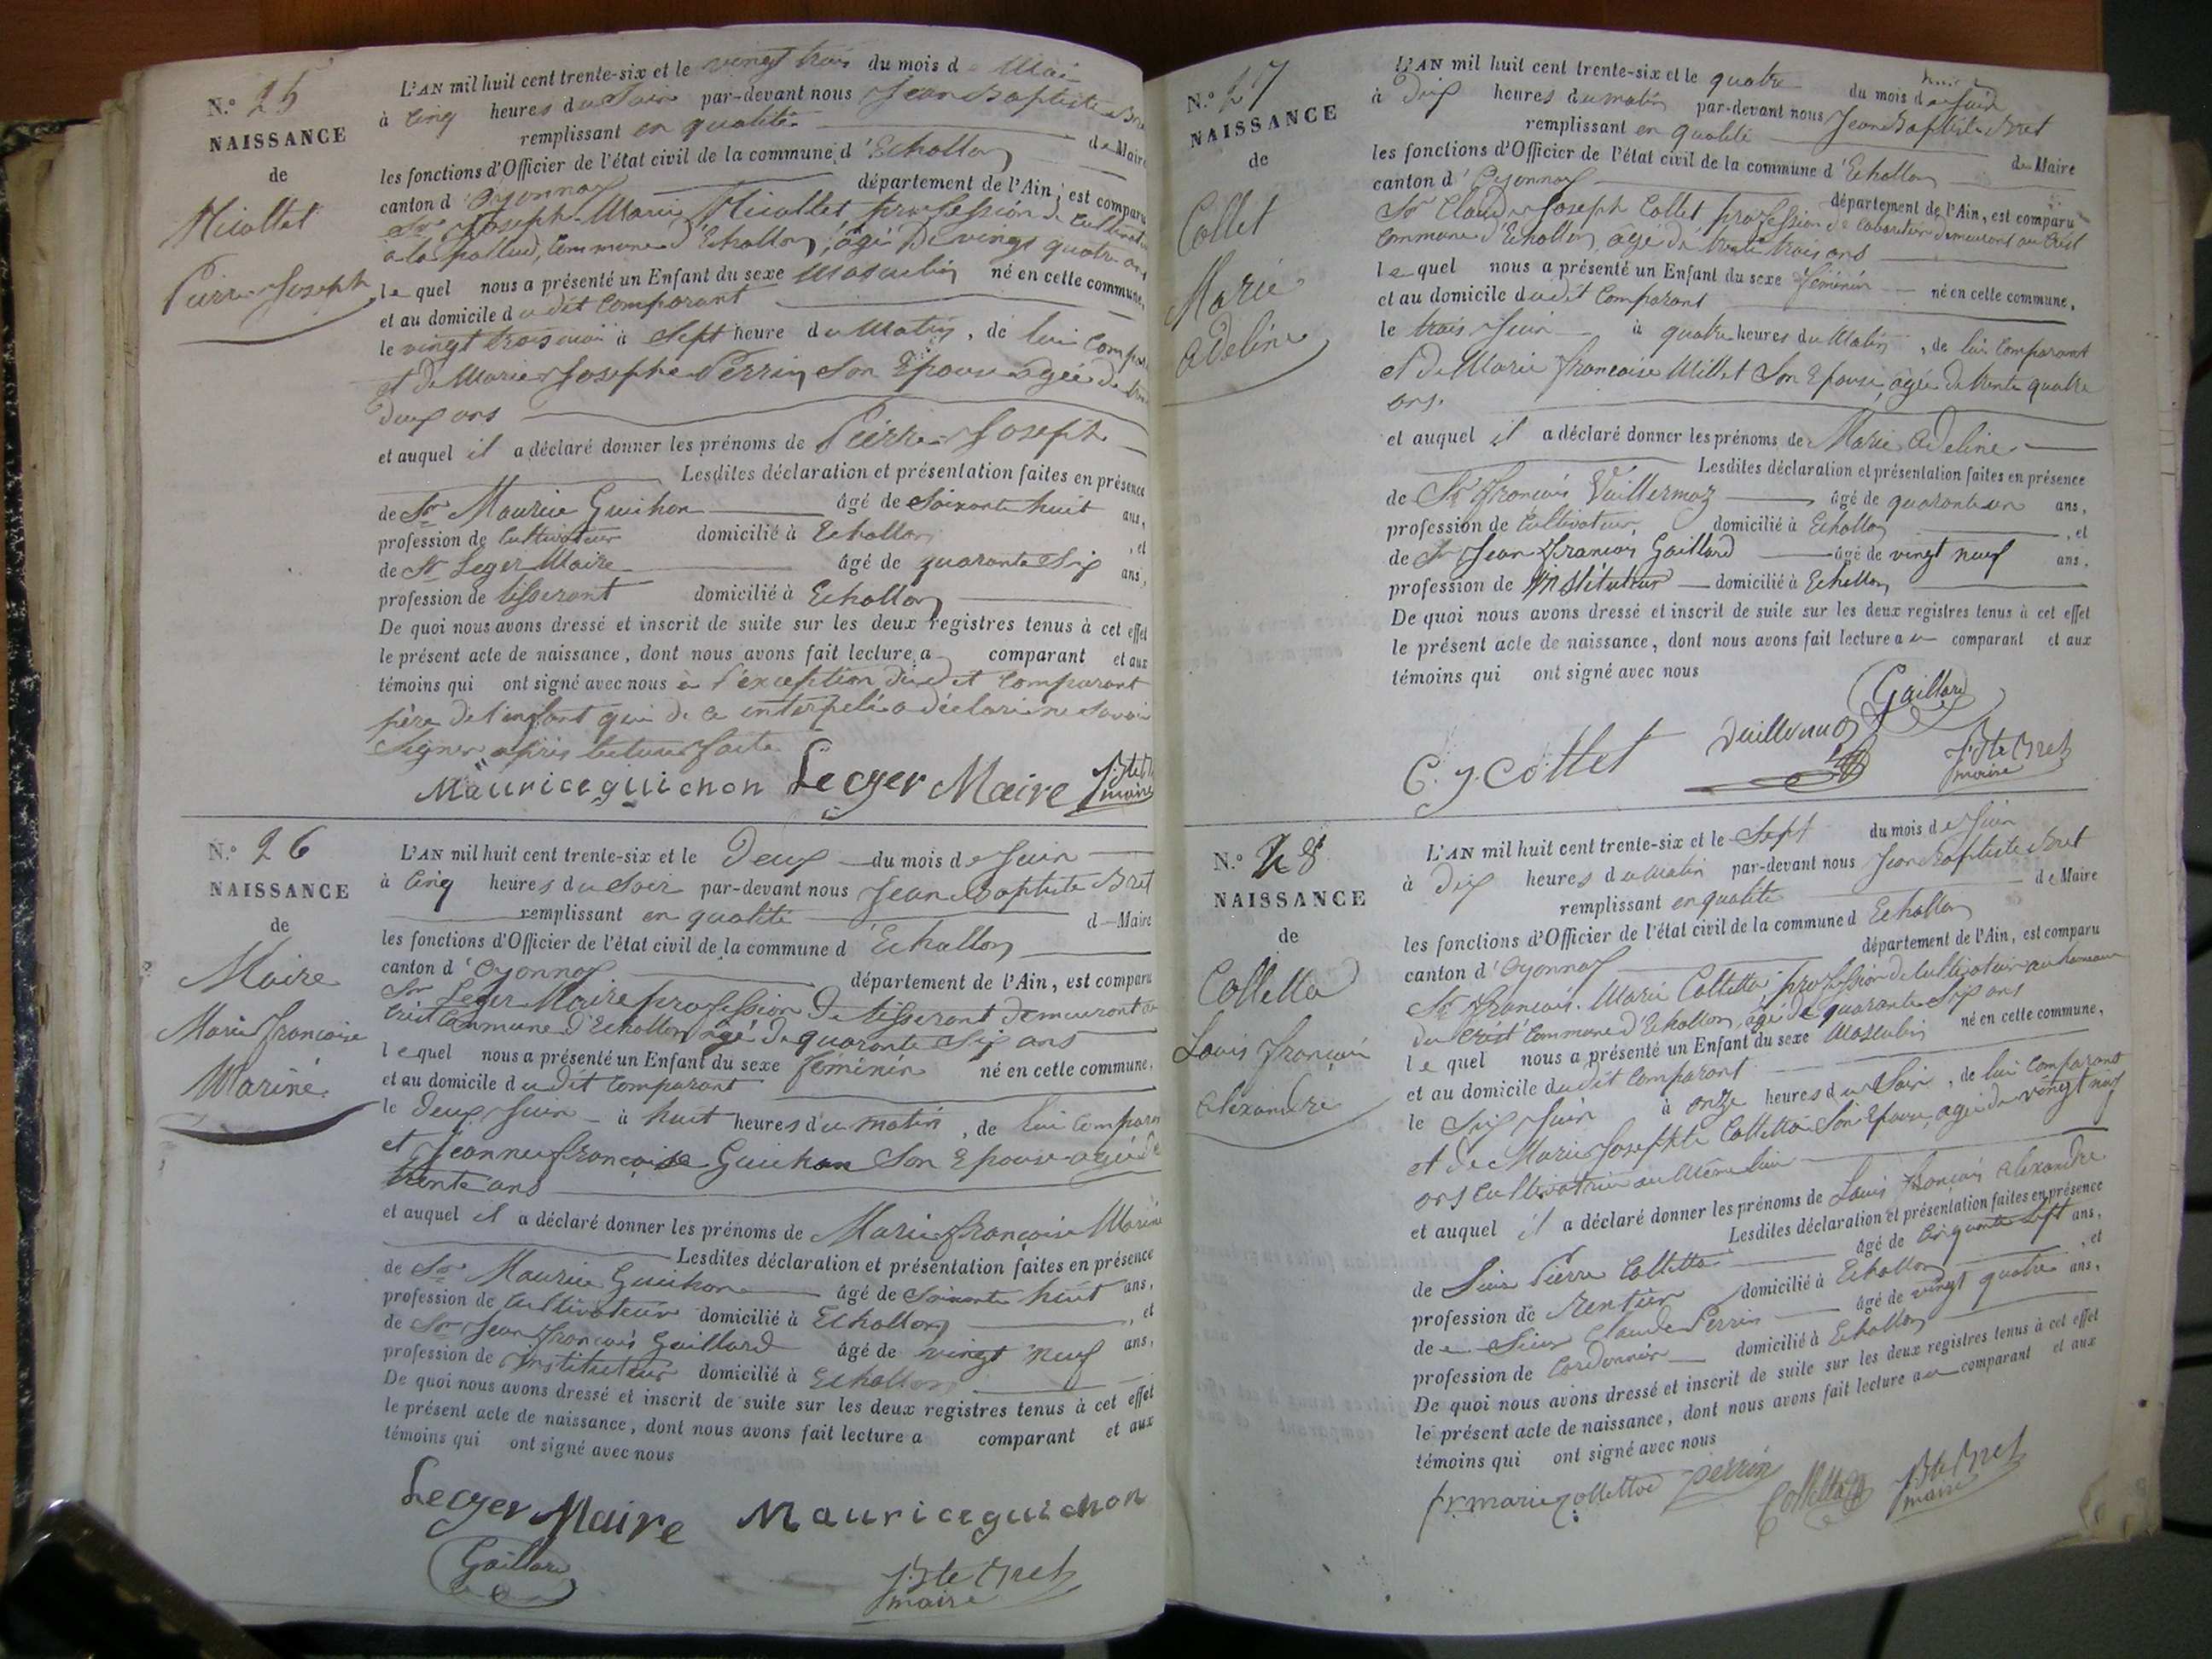 N.° 25
NAISSANCE
de
Nicollet
Pierre Joseph
L'AN mil huit cent trente-six et le vingt trois du mois de Mai
à Cinq heures du Soir par-devant nous Jean Baptiste Bret
remplissant en qualité de Maire
les fonctions d'Officier de l'état civil de la commune d'Echallon
canton d'Oyonnax département de l'Ain, est comparu
Sr Joseph Marie Nicollet, profession de Cultivateur
à la pallud, Commune d'Echallon, âgé de vingt quatre ans
lequel nous a présenté un Enfant du sexe Masculin né en cette commune,
et au domicile dudit Comparant
le vingt trois mai à Sept heure du Matin, de lui Compar
et de Marie Josephe Perrin Son Epouse âgée de
deux ans
et auquel il a déclaré donner les prénoms de Pierre Joseph
Lesdites déclaration et présentation faites en présence
de Sr Maurice Guichon âgé de Soixante huit ans,
profession de Cultivateur domicilié à Echallon, et
de Sr Leger Maire âgé de quarante Six ans,
profession de tisserant domicilié à Echallon
De quoi nous avons dressé et inscrit de suite sur les deux registres tenus à cet effet
le présent acte de naissance, dont nous avons fait lecture a comparant et aux
témoins qui ont signé avec nous à l'exception dudit Comparant
père de l'enfant qui de ce interpelé a déclaré ne Savoir
Signer après lecture faite
Maurice guichon Leger Maire J. Bte Bret
maire
N.° 26
NAISSANCE
de
Maire
Marie françoise
Marine
L'AN mil huit cent trente-six et le Deux du mois de Juin
à Cinq heures du Soir par-devant nous Jean Baptiste Bret
remplissant en qualité d Maire
les fonctions d'Officier de l'état civil de la commune d'Echallon
canton d'Oyonnax département de l'Ain, est comparu
Sr Leger Maire profession De tisserant demeurant au
Crêt Commune d'Echallon, âgé De quarante Six ans
lequel nous a présenté un Enfant du sexe féminin né en cette commune,
et au domicile dudit Comparant
le Deux Juin à huit heures du matin, de lui Comparant
et Jeanne françoise Guichon Son Epouse agée de
trente ans
et auquel il a déclaré donner les prénoms de Marie françoise Marine
Lesdites déclaration et présentation faites en présence
de Sr Maurice Guichon âgé de Soixante huit ans,
profession de Cultivateur domicilié à Echallon, et
de Sr Jean François Gaillard âgé de vingt neuf ans,
profession de instituteur domicilié à Echallon
De quoi nous avons dressé et inscrit de suite sur les deux registres tenus à cet effet
le présent acte de naissance, dont nous avons fait lecture a comparant et aux
témoins qui ont signé avec nous
Leger Maire Maurice guichon
Gaillard J. Bte Bret
maire
N.° 27
NAISSANCE
de
Collet
Marie
Adeline
L'AN mil huit cent trente-six et le quatre du mois de Juin
à Dix heures du matin par-devant nous Jean Baptiste Bret
remplissant en qualité de Maire
les fonctions d'Officier de l'état civil de la commune d'Echallon
canton d'Oyonnax département de l'Ain, est comparu
Sr Claude Joseph Collet profession de laboureur demeurant au Crêt
Commune d'Echallon, âgé de trente trois ans
lequel nous a présenté un Enfant du sexe féminin né en cette commune,
et au domicile dudit Comparant
le trois Juin à quatre heures du Matin, de lui Comparant
et de Marie françoise Millet Son Epouse, âgée de trente quatre
ans.
et auquel il a déclaré donner les prénoms de Marie Adeline
Lesdites déclaration et présentation faites en présence
de Sr François Vuillermoz âgé de quarante un ans,
profession de Cultivateur domicilié à Echallon, et
de Sr Jean François Gaillard âgé de vingt neuf ans.
profession de Instituteur domicilié à Echallon
De quoi nous avons dressé et inscrit de suite sur les deux registres tenus à cet effet
le présent acte de naissance, dont nous avons fait lecture au comparant et aux
témoins qui ont signé avec nous
Gaillard
C. J. Collet Vuillermoz J. Bte Bret
maire
N.° 28
NAISSANCE
de
Colletta
Louis françois
Alexandre
L'AN mil huit cent trente-six et le Sept du mois de Juin
à Dix heures du matin par-devant nous Jean Baptiste Bret
remplissant en qualité de Maire
les fonctions d'Officier de l'état civil de la commune d Echallon
canton d'Oyonnax département de l'Ain, est comparu
Sr François Marie Colletta, profession de Cultivateur au hameau
du Crêt Commune d'Echallon, âgé de quarante Six ans
lequel nous a présenté un Enfant du sexe Masculin né en cette commune,
et au domicile dudit Comparant
le Six Juin à onze heures du Soir, de lui Comparant
et de Marie Josephte Colletta Son Epouse, agée de vingt neuf
ans Cultivatrice au même lieu
et auquel il a déclaré donner les prénoms de Louis françois Alexandre
Lesdites déclaration et présentation faites en présence
de Sieur Pierre Colletta âgé de Cinquante Sept ans,
profession de Rentier domicilié à Echallon, et
de Sieur Claude Perrin âgé de vingt quatre ans,
profession de Cordonnier domicilié à Echallon
De quoi nous avons dressé et inscrit de suite sur les deux registres tenus à cet effet
le présent acte de naissance, dont nous avons fait lecture au comparant et aux
témoins qui ont signé avec nous
fr marie Colletta perrin Colletta J. Bte Bret
maire